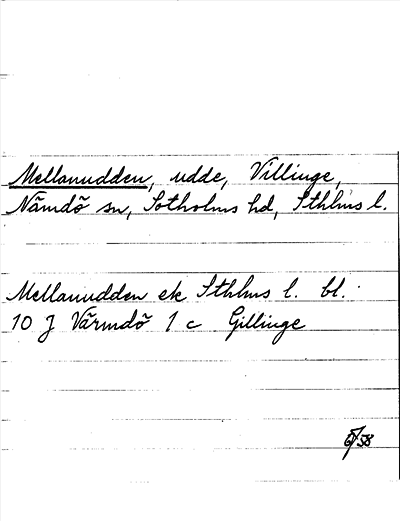 Mellanudden, udde, Villinge,
Nämdö sn, Sotholms hd, Sthlms l.
Mellanudden ek Sthlms l. bl.
10 J Värmdö 1 c Gillinge